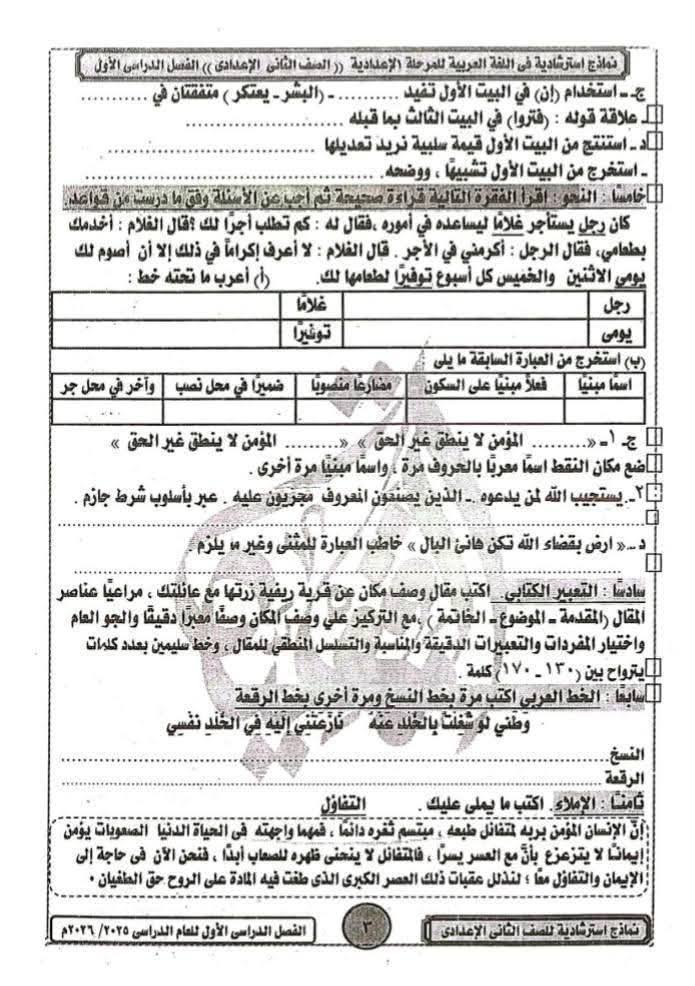 نماذج استرشادية فى اللغة العربية للمرحلة الإعدادية (( الصف الثانى الإعدادى )) الفصل الدراسى الأول
جـ ـ استخدام (إن) في البيت الأول تفيد .......... ـ (البشر ـ يعتكر) متفقتان في ..........
ـ علاقة قوله : (فتروا) في البيت الثالث بما قبله ..........
د ـ استنتج من البيت الأول قيمة سلبية نريد تعديلها ..........
ـ استخرج من البيت الأول تشبيهًا ، ووضحه. ..........
خامسًا : النحو : اقرأ الفقرة التالية قراءة صحيحة ثم أجب عن الأسئلة وفق ما درست من قواعد.
كان رجل يستأجر غلامًا ليساعده في أموره ،فقال له : كم تطلب أجرًا لك ؟قال الغلام : أخدمك
بطعامي، فقال الرجل : أكرمني في الأجر . قال الغلام : لا أعرف إكراماً في ذلك إلا أن أصوم لك
يومى الاثنين والخميس كل أسبوع توفيرًا لطعامها لك. (أ) أعرب ما تحته خط :
رجل غلامًا
يومى توفيرًا
(ب) استخرج من العبارة السابقة ما يلى
اسمًا مبنيًا فعلاً مبنيًا على السكون مضارعًا منصوبًا ضميرًا في محل نصب وآخر في محل جر
جـ ١ـ « .......... المؤمن لا ينطق غير الحق » « .......... المؤمن لا ينطق غير الحق »
ضع مكان النقط اسمًا معربًا بالحروف مرة ، واسمًا مبنيًا مرة أخرى .
٢ـ يستجيب الله لمن يدعوه ـ الذين يصنعون المعروف مجزيون عليه . عبر بأسلوب شرط جازم .
د ـ « ارض بقضاء الله تكن هانئ البال » خاطب العبارة للمثنى وغير ما يلزم .
سادسًا : التعبير الكتابى. اكتب مقال وصف مكان عن قرية ريفية زرتها مع عائلتك ، مراعيًا عناصر
المقال (المقدمة ـ الموضوع ـ الخاتمة ) ،مع التركيز على وصف المكان وصفًا معبرًا دقيقًا والجو العام
واختيار المفردات والتعبيرات الدقيقة والمناسبة والتسلسل المنطقي للمقال ، وخط سليمين بعدد كلمات
يتراوح بين (١٣٠ ـ ١٧٠) كلمة .
سابعًا : الخط العربي اكتب مرة بخط النسخ ومرة أخرى بخط الرقعة
وَطَنِي لَو شُغِلتُ بِالخُلدِ عَنهُ نازَعَتني إِلَيهِ فِي الخُلدِ نَفسي
النسخ ..........
الرقعة ..........
ثامنًا : الإملاء. اكتب ما يملى عليك . التفاؤل
إنّ الإنسان المؤمن بربه لمتفائل طبعه ، مبتسم ثغره دائمًا ، فمهما واجهته فى الحياة الدنيا الصعوبات يؤمن
إيمانًا لا يتزعزع بأنَّ مع العسر يسرًا ، فالمتفائل لا ينحنى ظهره للصعاب أبدًا ، فنحن الآن فى حاجة إلى
الإيمان والتفاؤل معًا ؛ لنذلل عقبات ذلك العصر الكبرى الذى طغت فيه المادة على الروح حق الطغيان .
نماذج استرشادية للصف الثانى الإعدادى
٣
الفصل الدراسى الأول للعام الدراسى ٢٠٢٥/ ٢٠٢٦م